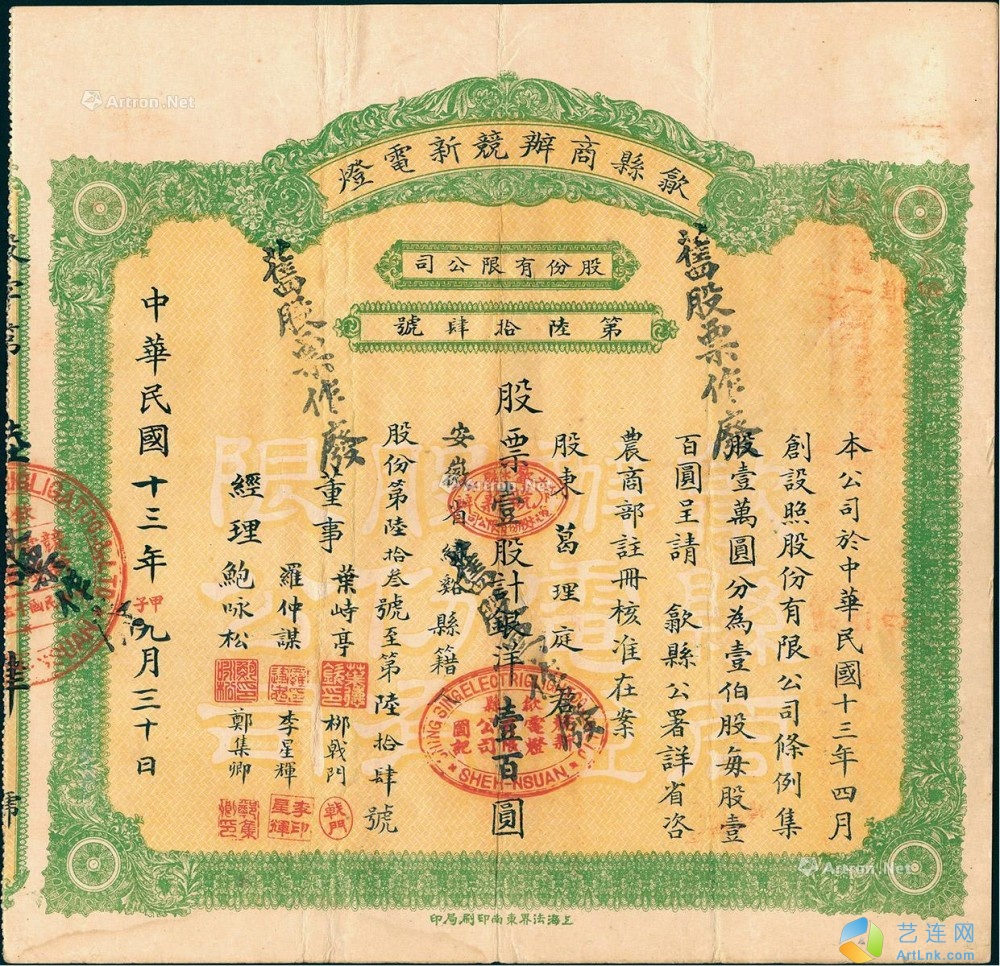 歙縣商辦競新電燈
股份有限公司
第陸拾肆號
本公司於中華民國十三年四月
創設照股份有限公司條例集
股壹萬圓分為壹伯股每股壹
百圓呈請 歙縣公署詳省咨
農商部註冊核准在案
股東 葛理庭 君
股票壹股計銀洋壹百圓
安徽省績谿縣籍
股份第陸拾叁號至第陸拾肆號
董事 葉峙亭 梆戰門
羅仲謀 李星輝
經理 鮑咏松 鄭集卿
中華民國十三年九月三十日
舊股票作廢
舊股票作廢
SHEH-NSUAN
李印星輝
戰門
甲子
上海法界東南印刷局印
Artron.Net
Artron.Net
Artron.Net
Artron.Net
艺连网
ArtLnk.com